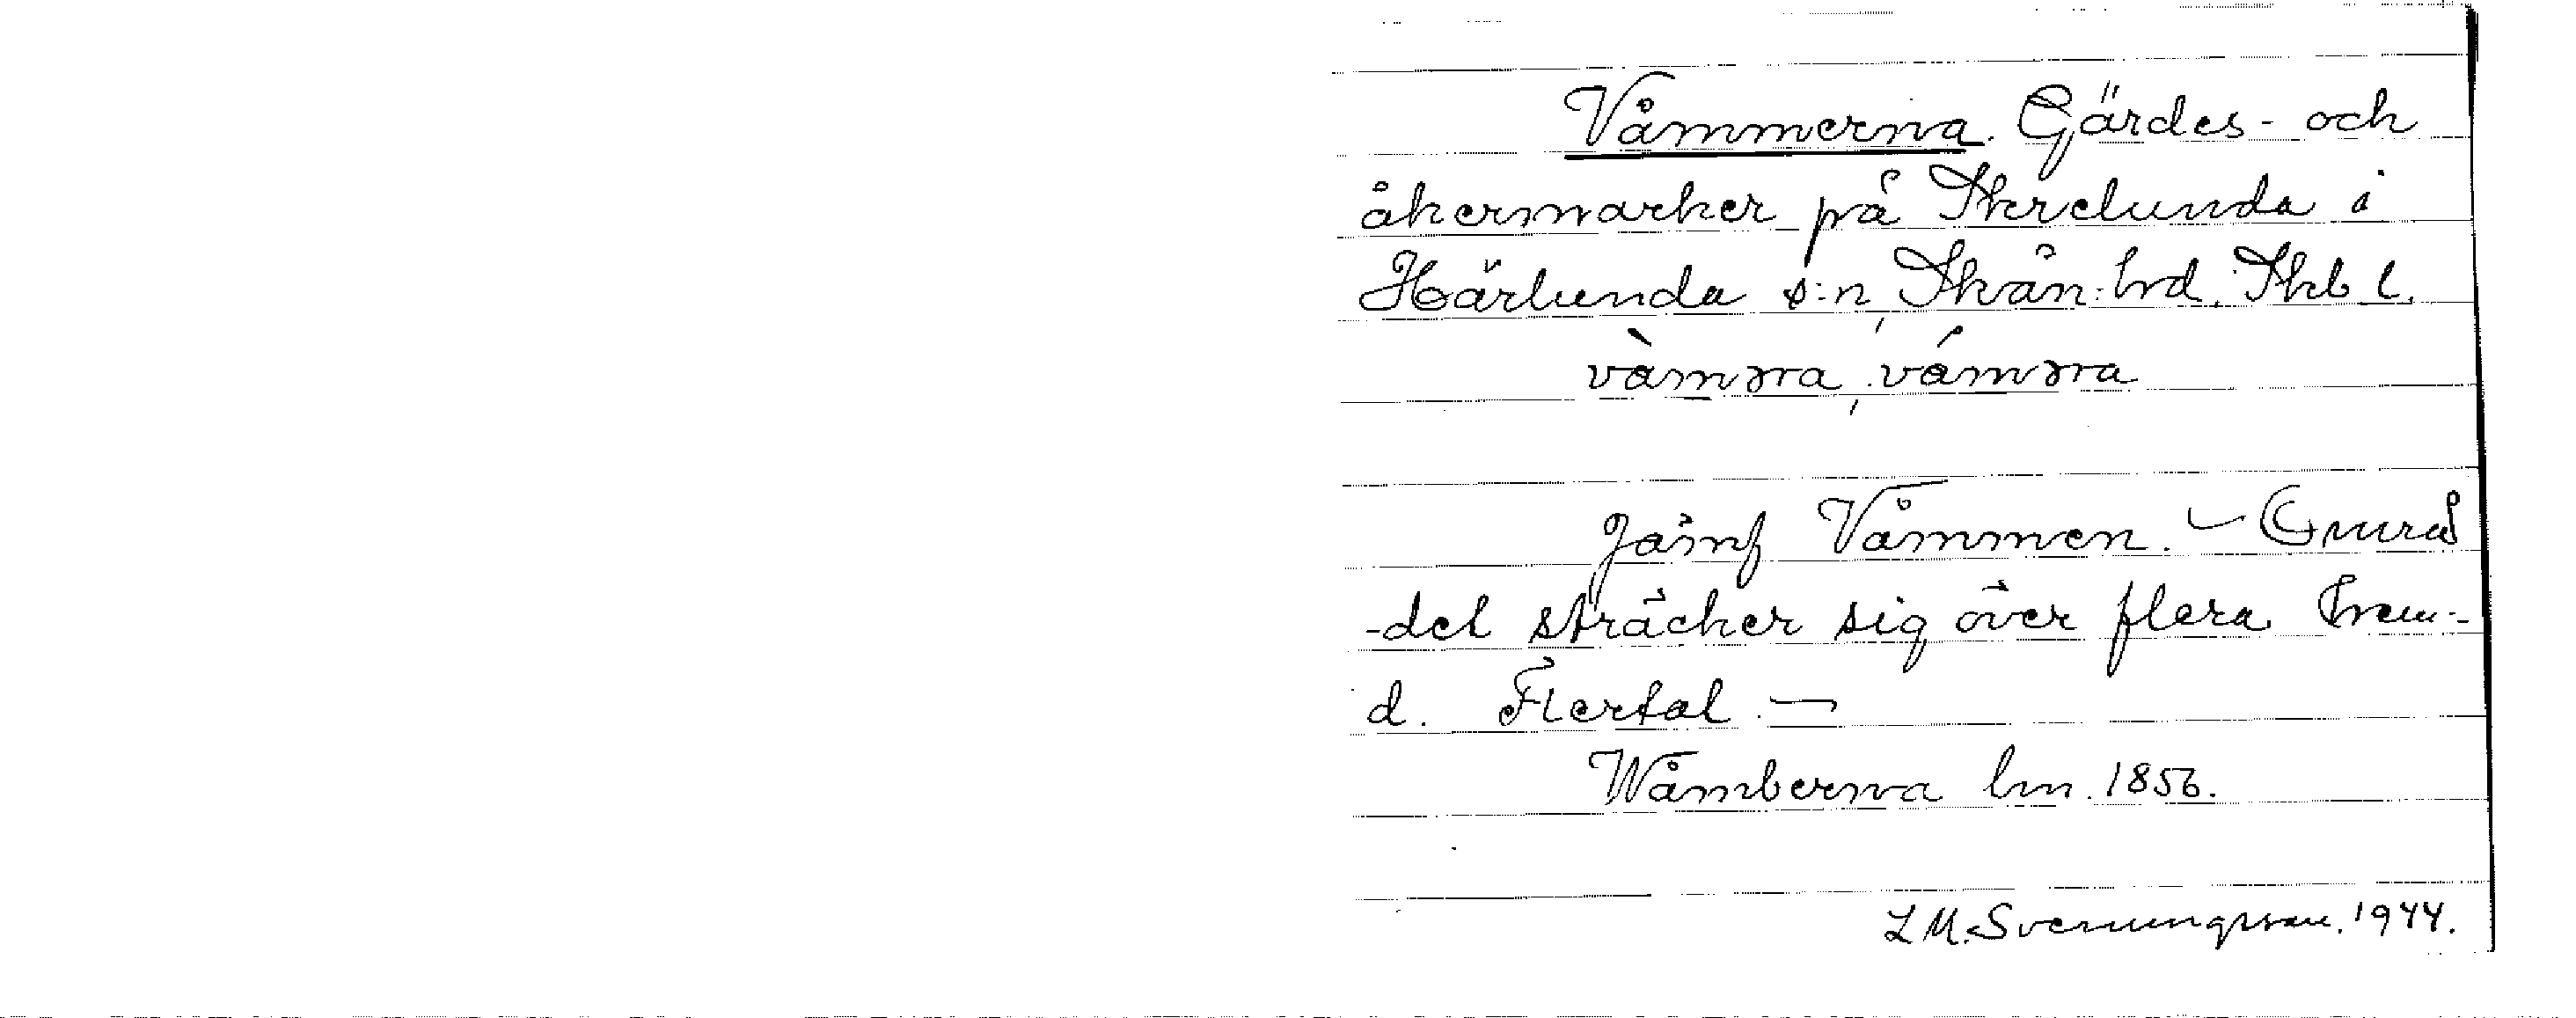 Våmmerna. Gärdes- och
åkermarker på Skrelunda i
Härlunda s:n, Skån. hrd. Skb l.
vàmәra, vámәra
Jämf Våmmen. –Områ
-det sträcker sig över flera hem-
d. Flertal. –
Wåmberna lm. 1856.
L M. Svenungsson. 1944.